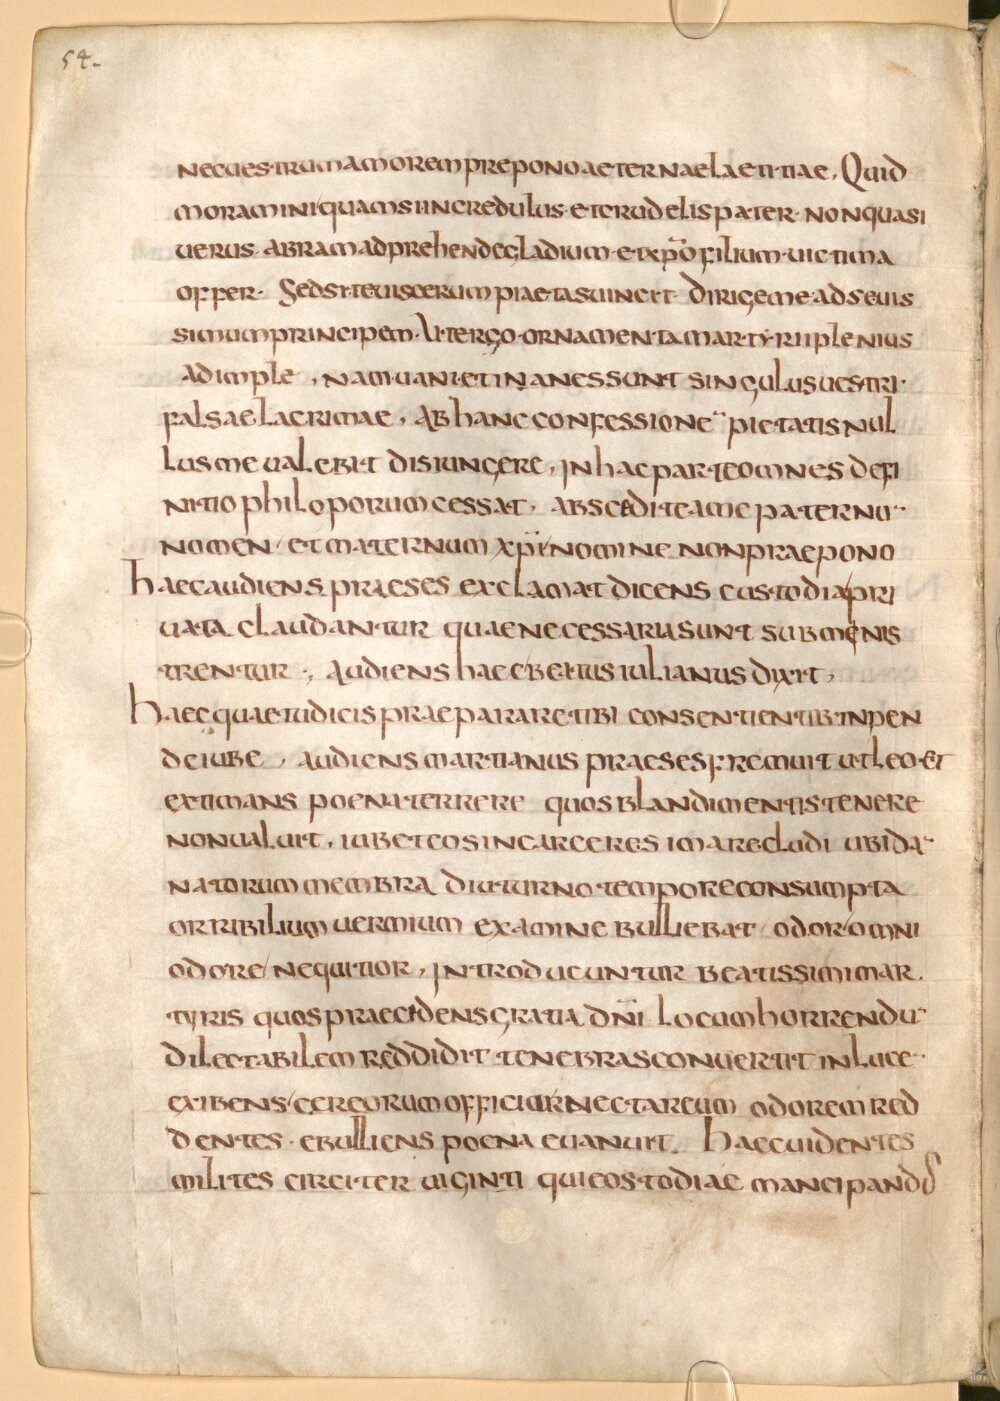 54.
nec uestrum amorem prepono aeternae laetitiae, Quid
moramini quam si incredulus et crudelis pater non quasi
uerus abram adprehende gladium et xpo filium uictima
offer. Sed si te uiscerum piaetas uincit Dirige me ad seuis
simum principem. Ut ergo ornamenta martyrii plenius
adimple, nam uani et inanes sunt singulus uestri
falsae lacrimae, Ab hanc confessione pietatis nul
lus me ualebit disiungere, in hac parte omnes defi
nitio philoporum cessat, abscidite a me paternu
nomen et maternum xpi nomine non praepono
haec audiens praeses exclamat dicens custodia pri
uata claudantur quae necessaria sunt submenis
trentur, Audiens haec beitus iulianus dixit,
haec quae iudicis praeparare tibi consentientib. inpen
de iube, audiens martianus praeses fremuit ut leo et
extimans poena terrere quos blandimentis tenere
non ualuit, iubet eos in carceres ima recludi ubi da
natorum membra diuturno tempore consumpta
orribilium uermium examine bulliebat odor omni
odore nequitior, introducuntur beatissimi mar
tyris quos praecidens gratia dni locum horrendu
dilectabilem reddidit tenebras conuertit in luce
exibens cereorum officiu nectareum odorem red
dentes ebulliens poena euanuit. haec uidentes
milites circiter uiginti qui eos todiae mancipandus